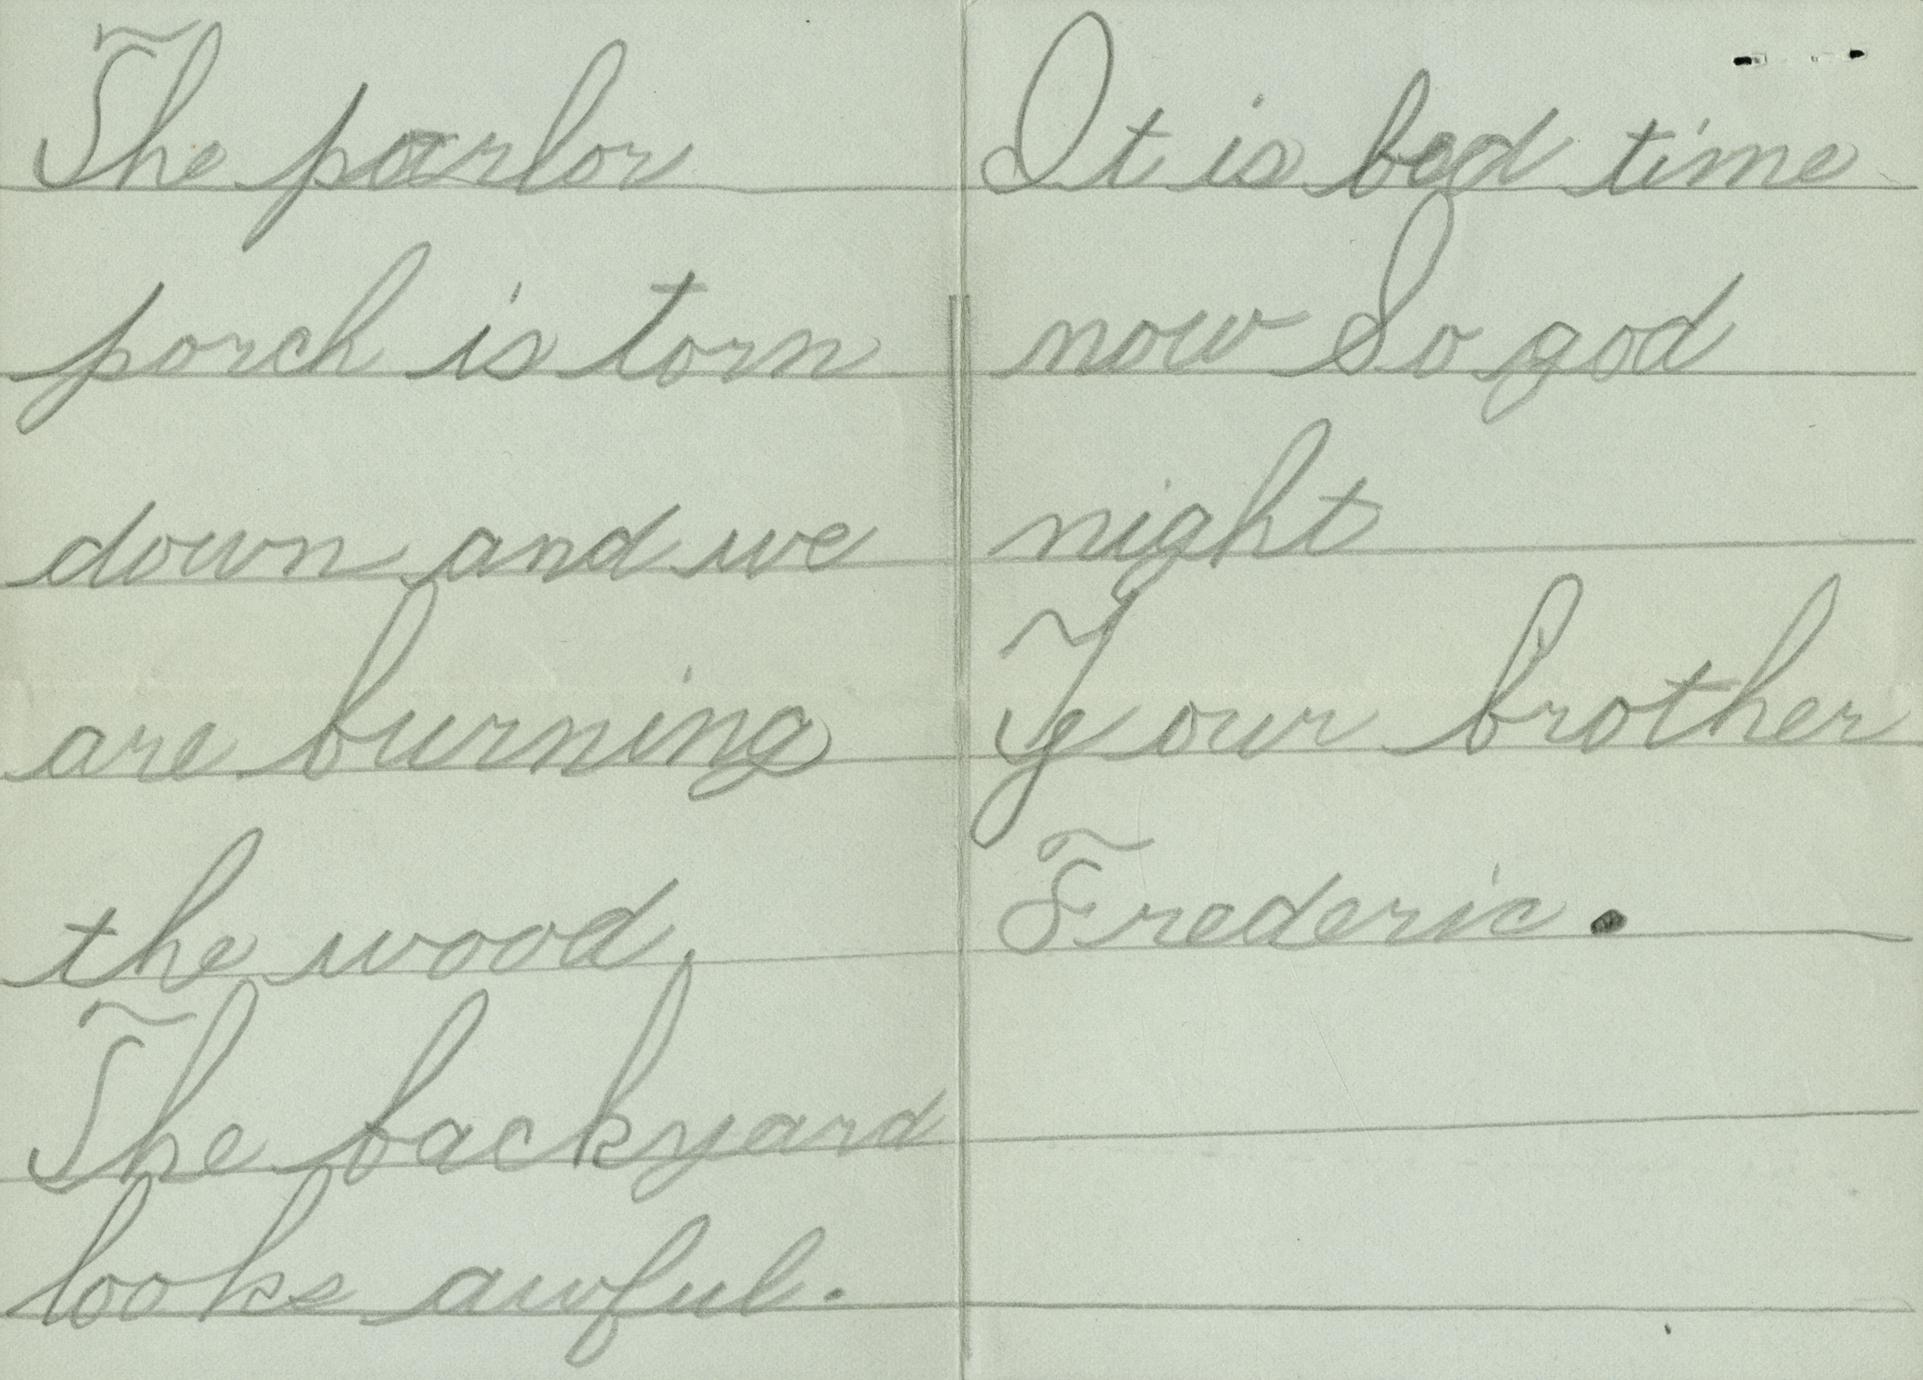 The parlor
porch is torn
down and we
are burning
the wood.
The backyard
looks awful.
It is bed time
now So god
night
Your brother
Frederic.